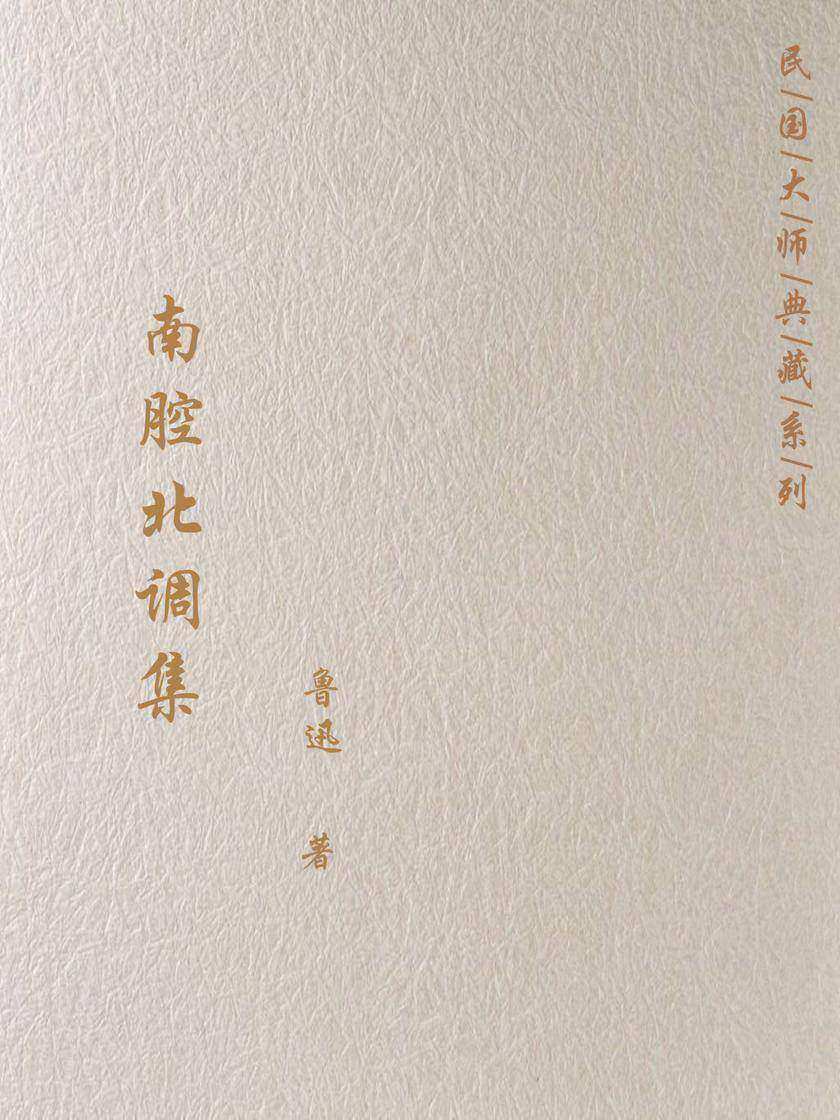 民/国/大/师/典/藏/系/列
南腔北调集
鲁迅 著